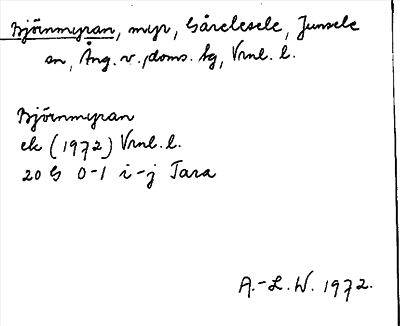 Björnmyran, myr, Gårelesele, Junsele
sn, Ång. v. doms. hg, Vrnl. l.
Björnmyran
ek (1972) Vrnl. l.
20 G 0-1 i-j Tara
A.-L. W. 1972.